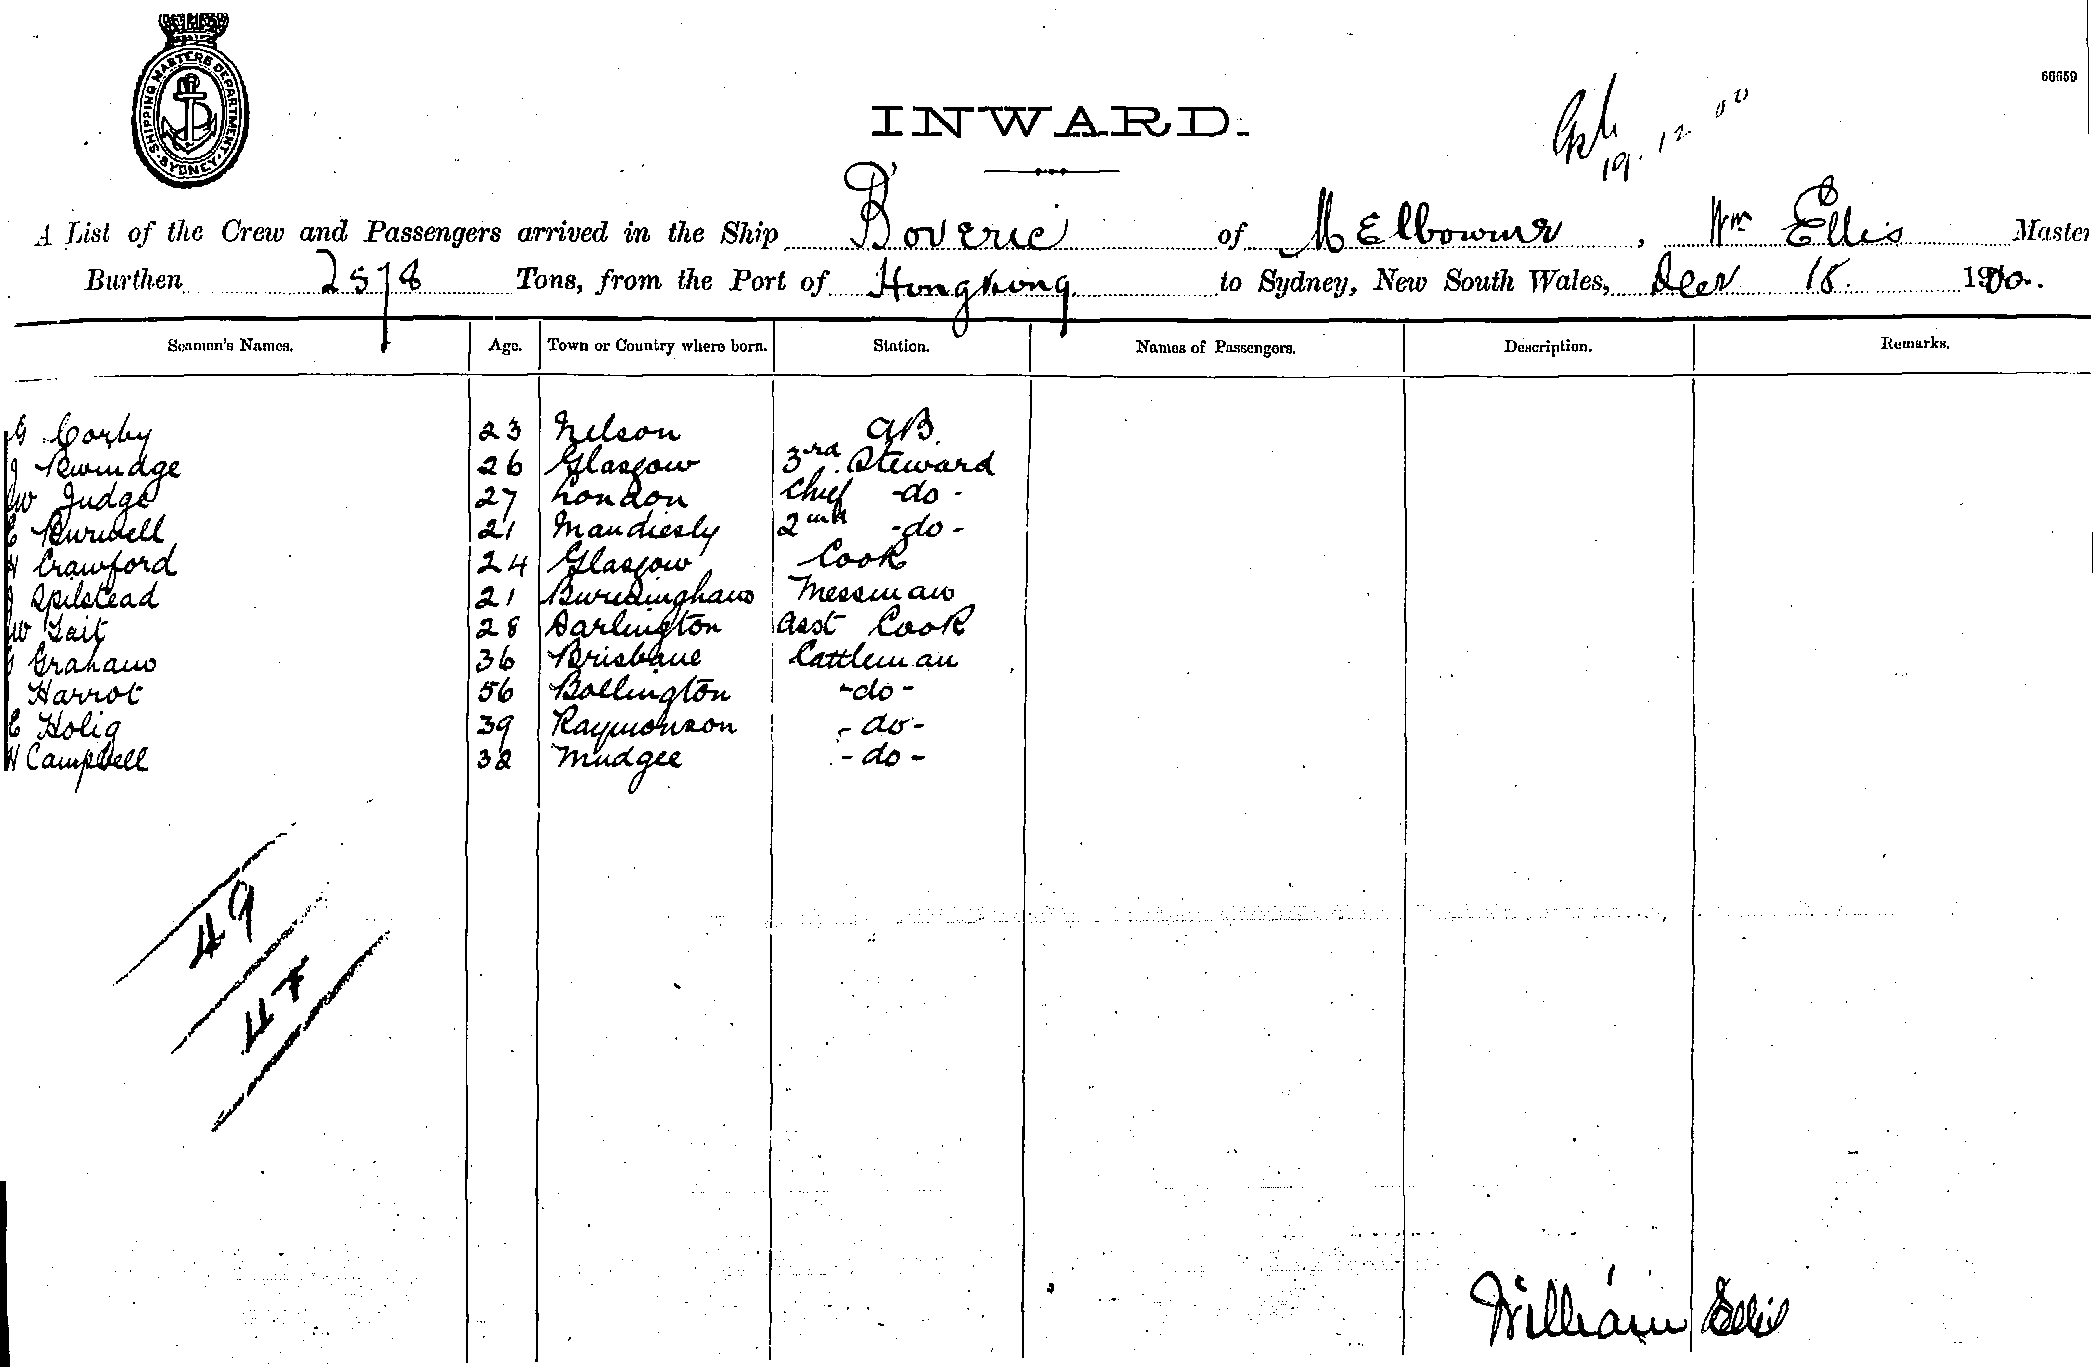 SHIPPING MASTERS DEPARTMENT. SYDNEY.
66659
INWARD.
19.12.00
A List of the Crew and Passengers arrived in the Ship Boveric of Melbourne, Wm Ellis Master
Burthen 2578 Tons, from the Port of Hongkong to Sydney, New South Wales, Decr 18. 1900.
Seamen's Names. Age. Town or Country where born. Station. Names of Passengers. Description. Remarks.
G Corby 23 Nelson AB
J 26 Glasgow 3rd Steward
W Judge 27 London Chief -do-
E Burwell 21 2nd -do-
H Crawford 24 Glasgow Cook
Spilstead 21 Burmingham Messman
W Tait 28 Darlington Asst Cook
Graham 36 Brisbane Cattleman
Harrot 56 Bollington -do-
E Holig 39 Raymonson -do-
H Campbell 32 Mudgee -do-
49
47
William Ellis